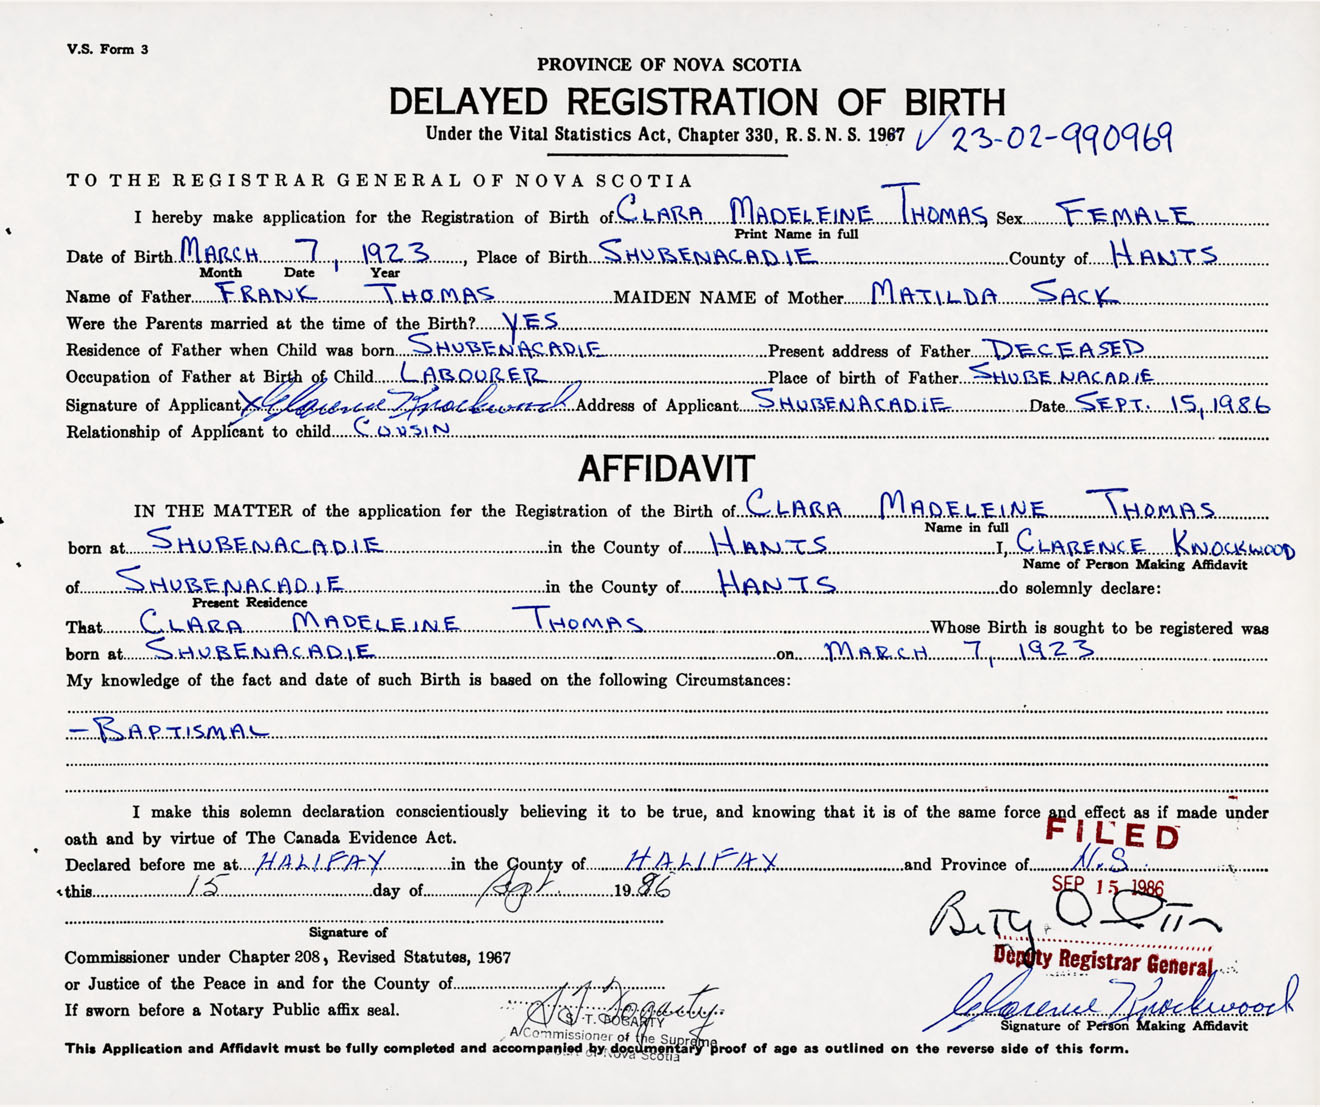 V.S. Form 3
PROVINCE OF NOVA SCOTIA
DELAYED REGISTRATION OF BIRTH
Under the Vital Statistics Act, Chapter 330, R.S.N.S. 1967 ✓ 23-02-990969
TO THE REGISTRAR GENERAL OF NOVA SCOTIA
I hereby make application for the Registration of Birth of CLARA MADELEINE THOMAS, Sex FEMALE
Print Name in full
Date of Birth MARCH 7, 1923, Place of Birth SHUBENACADIE County of HANTS
Month Date Year
Name of Father FRANK THOMAS MAIDEN NAME of Mother MATILDA SACK
Were the Parents married at the time of the Birth? YES
Residence of Father when Child was born SHUBENACADIE Present address of Father DECEASED
Occupation of Father at Birth of Child LABOURER Place of birth of Father SHUBENACADIE
Signature of Applicant X Clarence Knockwood Address of Applicant SHUBENACADIE Date SEPT. 15, 1986
Relationship of Applicant to child COUSIN
AFFIDAVIT
IN THE MATTER of the application for the Registration of the Birth of CLARA MADELEINE THOMAS
Name in full
born at SHUBENACADIE in the County of HANTS I, CLARENCE KNOCKWOOD
Name of Person Making Affidavit
of SHUBENACADIE in the County of HANTS do solemnly declare:
Present Residence
That CLARA MADELEINE THOMAS Whose Birth is sought to be registered was
born at SHUBENACADIE on MARCH 7, 1923
My knowledge of the fact and date of such Birth is based on the following Circumstances:
- BAPTISMAL
I make this solemn declaration conscientiously believing it to be true, and knowing that it is of the same force and effect as if made under
oath and by virtue of The Canada Evidence Act.
FILED
Declared before me at HALIFAX in the County of HALIFAX and Province of N.S.
this 15 day of Sept 1986
SEP 15 1986
Betty
Signature of
Deputy Registrar General
Commissioner under Chapter 208, Revised Statutes, 1967
or Justice of the Peace in and for the County of
If sworn before a Notary Public affix seal.
S T Fogarty
S. T. FOGARTY
A Commissioner of the Supreme
Court of Nova Scotia
Clarence Knockwood
Signature of Person Making Affidavit
This Application and Affidavit must be fully completed and accompanied by documentary proof of age as outlined on the reverse side of this form.